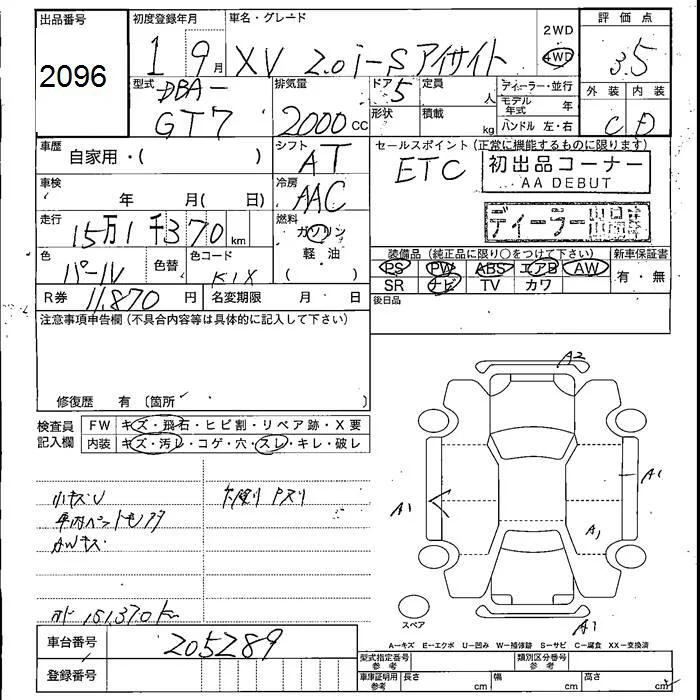 出品番号 初度登録年月 車名・グレード 2WD 評価点
2096 1 9月 XV 2.0i-S アイサイト 4WD 3.5
型式 排気量 ドア 定員 ディーラー・並行 外装 内装
DBA- 5 人 モデル年式 年
GT7 2000cc 形状 積載 kg ハンドル 左・右 C D
車歴 シフト セールスポイント (正常に機能するものに限ります)
自家用・( ) AT ETC 初出品コーナー
AA DEBUT
車検 冷房
年 月( 日) AAC
走行 燃料 ディーラー
15万1千370km ガソリン
色 色替 色コード 軽・油 装備品 (純正品に限り○をつけて下さい) 新車保証書
パール K1X ( ) PS PW ABS エアB AW 有・無
SR ナビ TV カワ
R券 11,870円 名変期限 月 日 後日品
注意事項申告欄 (不具合内容等は具体的に記入して下さい)
修復歴 有 〔箇所 〕
A2
検査員記入欄 FW キズ・飛石・ヒビ割・リペア跡・X要
内装 キズ・汚レ・コゲ・穴・スレ・キレ・破レ
A1
A1
A1
小キズU 下廻りアスリ
AWキズ
151,370km
スペア A1
A=キズ E=エクボ U=凹み W=補修跡 S=サビ C=腐食 XX=交換済
車台番号 205289
型式指定番号 参考 類別区分番号 参考
登録番号 車庫証明用 参考 長さ cm 幅 cm 高さ cm